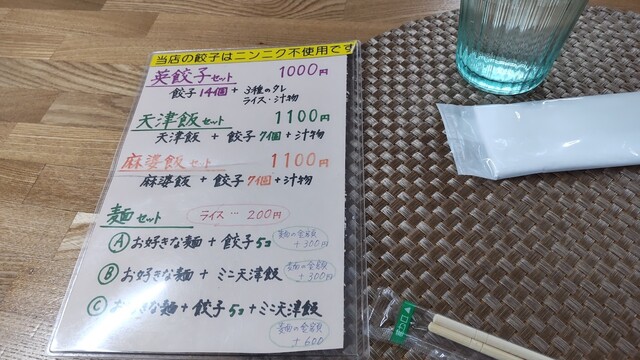 当店の餃子はニンニク不使用です
英餃子セット 1000円
餃子14個 + 3種のタレ
ライス・汁物
天津飯セット 1100円
天津飯 + 餃子7個 + 汁物
麻婆飯セット 1100円
麻婆飯 + 餃子7個 + 汁物
麺セット ライス…200円
Ⓐお好きな麺 + 餃子5コ 麺の金額
+300円
Ⓑお好きな麺 + ミニ天津飯 麺の金額
+300円
Ⓒお好きな麺 + 餃子5コ + ミニ天津飯
麺の金額
+600